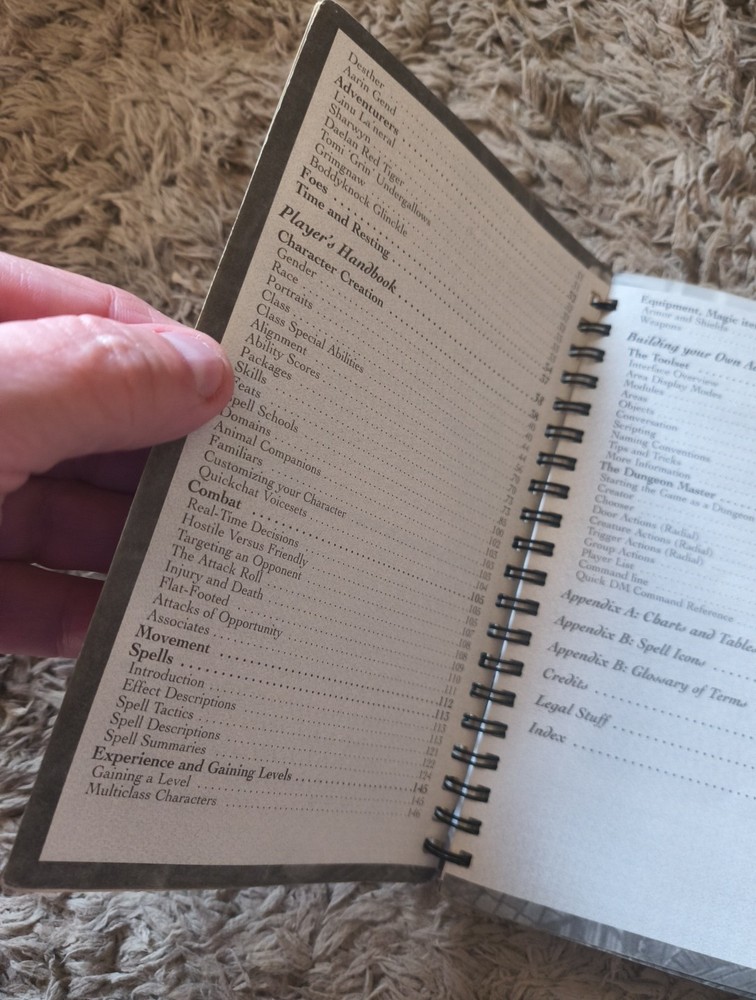 Desther
Aarin Gend
Adventurers
Linu La'neral
Sharwyn
Daelan Red Tiger
Tomi 'Grin' Undergallows
Grimgnaw
Boddyknock Glinckle
Foes
Time and Resting
Player's Handbook
Character Creation
Gender
Race
Portraits
Class
Class Special Abilities
Alignment
Ability Scores
Packages
Skills
Feats
Spell Schools
Domains
Animal Companions
Familiars
Customizing your Character
Quickchat Voicesets
Combat
Real-Time Decisions
Hostile Versus Friendly
Targeting an Opponent
The Attack Roll
Injury and Death
Flat-Footed
Attacks of Opportunity
Associates
Movement ... 112
Spells ... 113
Introduction ... 113
Effect Descriptions
Spell Tactics
Spell Descriptions
Spell Summaries
Experience and Gaining Levels ... 145
Gaining a Level ... 145
Multiclass Characters ... 146
Equipment, Magic
Armor and Shields
Weapons
Building your Own
The Toolset
Interface Overview
Area Display Modes
Modules
Areas
Objects
Conversation
Scripting
Naming Conventions
Tips and Tricks
More Information
The Dungeon Master
Starting the Game as a
Creator
Chooser
Door Actions (Radial)
Creature Actions (Radial)
Trigger Actions (Radial)
Group Actions
Player List
Command line
Quick DM Command Reference
Appendix A: Charts and Tables
Appendix B: Spell Icons
Appendix B: Glossary of Terms
Credits
Legal Stuff
Index